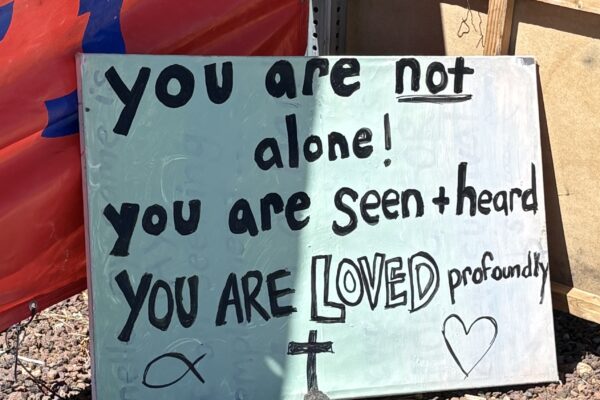 you are not
alone!
you are seen + heard
YOU ARE LOVED profoundly